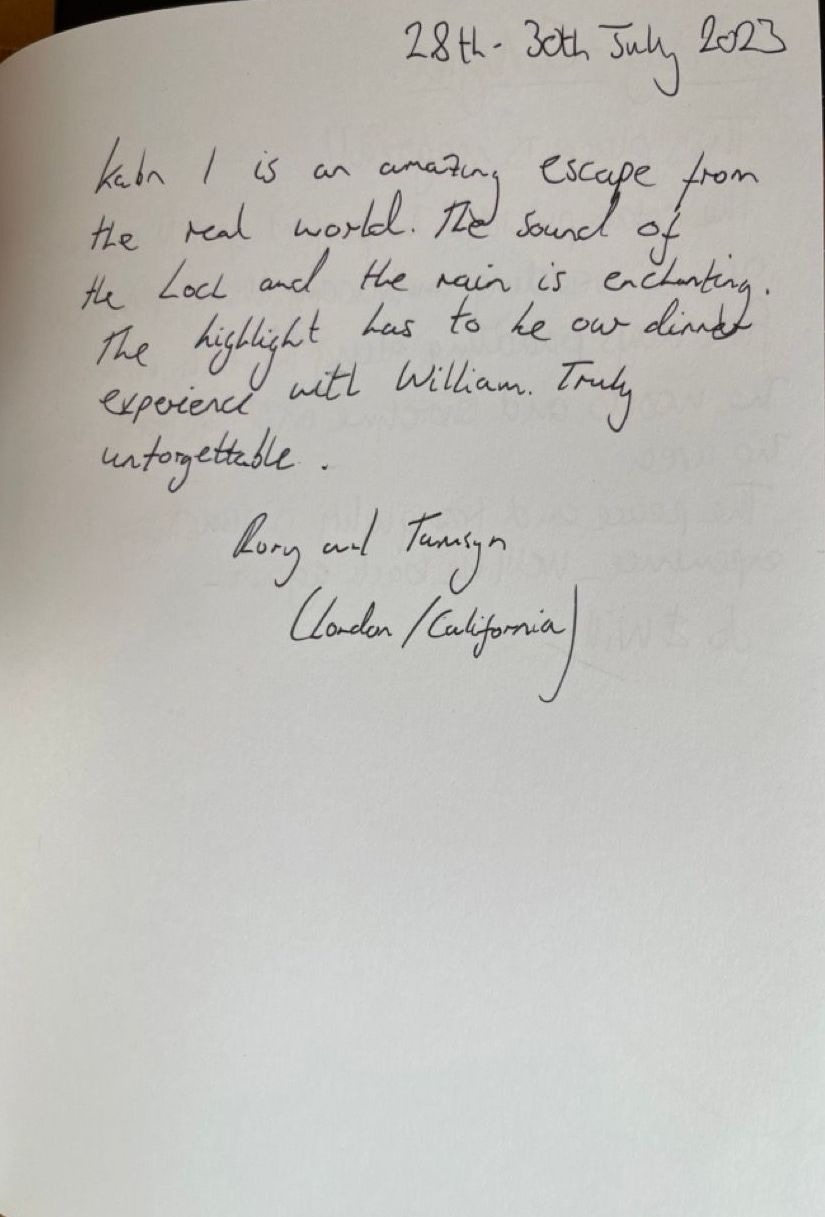 28th - 30th July 2023
Kabn 1 is an amazing escape from
the real world. The sound of
the Loch and the rain is enchanting.
The highlight has to be our dinner
experience with William. Truly
unforgettable.
Rory and Tamsyn
(London / California)